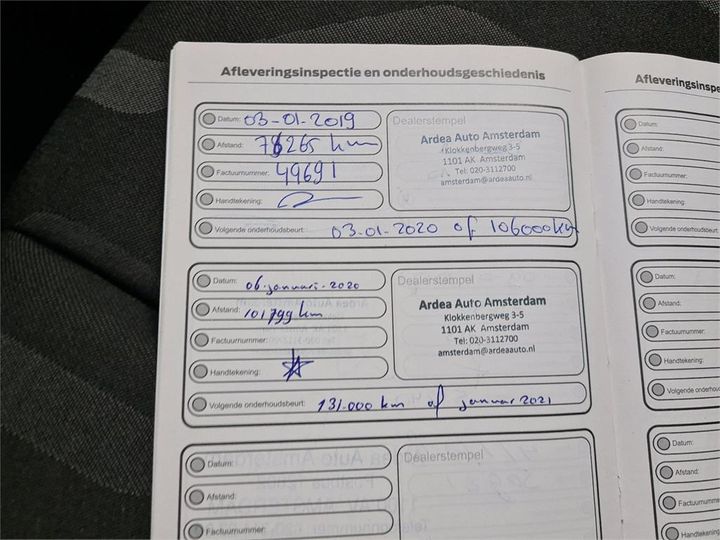 Afleveringsinspectie en onderhoudsgeschiedenis
Datum: 03-01-2019
Afstand: 76265 km
Factuurnummer: 49691
Handtekening:
Volgende onderhoudsbeurt: 03-01-2020 of 106000km
Dealerstempel
Ardea Auto Amsterdam
Klokkenbergweg 3-5
1101 AK Amsterdam
Tel: 020-3112700
amsterdam@ardeaauto.nl
Datum: 06-januari-2020
Afstand: 101799 km
Factuurnummer:
Handtekening:
Volgende onderhoudsbeurt: 131.000 km of januar 2021
Dealerstempel
Ardea Auto Amsterdam
Klokkenbergweg 3-5
1101 AK Amsterdam
Tel: 020-3112700
amsterdam@ardeaauto.nl
Datum:
Afstand:
Factuurnummer:
Dealerstempel
Afleveringsinspe
Datum:
Afstand:
Factuurnummer:
Handtekening:
Volgende onderhoudsbeurt
Datum:
Afstand:
Factuurnummer:
Handtekening:
Volgende onderhoudsbeurt
Datum:
Afstand:
Factuurnummer
Handtekening